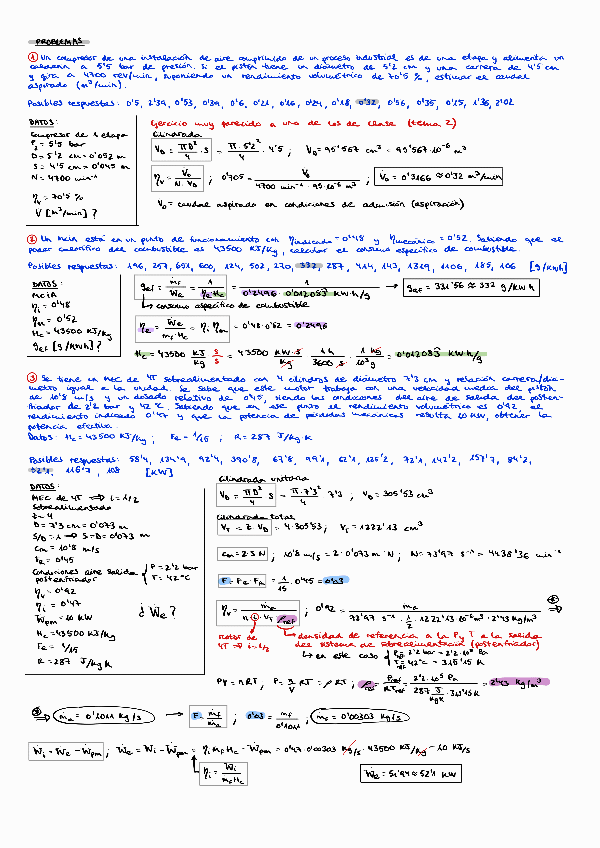 PROBLEMAS
1 Un compresor de una instalación de aire comprimido de un proceso industrial es de una etapa y alimenta un
calderín a 5'5 bar de presión. Si el pistón tiene un diámetro de 5'2 cm y una carrera de 4'5 cm
y gira a 4700 rev/min, suponiendo un rendimiento volumétrico de 70'5 %, estimar el caudal
aspirado (m³/min).
Posibles respuestas: 0'5, 2'39, 0'53, 0'39, 0'6, 0'21, 0'16, 0'29, 0'18, 0'32, 0'56, 0'35, 0'25, 1'36, 2'02
DATOS:
Compresor de 1 etapa
P₂ = 5'5 bar
D = 5'2 cm = 0'052 m
S = 4'5 cm = 0'045 m
N = 4700 min⁻¹
ηv = 70'5 %
V [m³/min] ?
Ejercicio muy parecido a uno de los de clase (tema 2)
Cilindrada
V_D = πD²/4 · S = π·5'2²/4 · 4'5 ; V_D = 95'567 cm³ = 95'567·10⁻⁶ m³
ηv = V̇₀/(N·V_D) ; 0'705 = V̇₀/(4700 min⁻¹ · 95·10⁻⁶ m³) ; V̇₀ = 0'3166 ≈ 0'32 m³/min
V̇₀ = caudal aspirado en condiciones de admisión (aspiración)
2 Un MCIA está en un punto de funcionamiento con η indicado = 0'48 y η mecánico = 0'52. Sabiendo que el
poder calorífico del combustible es 43500 KJ/Kg, calcular el consumo específico de combustible
Posibles respuestas: 196, 257, 691, 600, 124, 502, 270, 332, 287, 414, 143, 1329, 1106, 185, 106 [g/KWh]
DATOS:
MCIA
ηi = 0'48
ηm = 0'52
Hc = 43500 KJ/Kg
gef [g/KWh] ?
gef = ṁf/Ẇe = 1/(ηe·Hc) = 1/(0'2496 · 0'012083 KWh/g) → gef = 331'56 ≈ 332 g/KWh
→ consumo específico de combustible
ηe = Ẇe/(ṁf·Hc) = ηi·ηm = 0'48·0'52 = 0'2496
Hc = 43500 KJ/Kg · s/s = 43500 KW·s/Kg · 1h/3600 s · 1 Kg/10³ g = 0'012083 KWh/g
3 Se tiene un MEC de 4T sobrealimentado con 4 cilindros de diámetro 7'3 cm y relación carrera/diá-
metro igual a la unidad. Se sabe que este motor trabaja con una velocidad media del pistón
de 10'8 m/s y un dosado relativo de 0'45, siendo las condiciones del aire de salida del posten-
friador de 2'2 bar y 42 ºC. Sabiendo que en ese punto el rendimiento volumétrico es 0'92, el
rendimiento indicado 0'47 y que la potencia de pérdidas mecánicas resulta 10 KW, obtener la
potencia efectiva.
Datos: Hc = 43500 KJ/Kg ; Fe = 1/15 ; R = 287 J/Kg·K
Posibles respuestas: 58'4, 134'9, 92'4, 390'8, 67'8, 99'1, 62'1, 125'2, 72'1, 142'2, 157'7, 84'2,
52'1, 116'7, 108 [KW]
DATOS:
MEC de 4T ⇒ i = 1/2
Sobrealimentado
Z = 4
D = 7'3 cm = 0'073 m
S/D = 1 ⇒ S = D = 0'073 m
cm = 10'8 m/s
Fr = 0'45
Condiciones aire salida
postenfriador
P = 2'2 bar
T = 42 ºC
ηv = 0'92
ηi = 0'47
Ẇpm = 10 KW
Hc = 43500 KJ/Kg
Fe = 1/15
R = 287 J/Kg K
¿Ẇe?
Cilindrada unitaria
V_D = πD²/4 · S = π·7'3²/4 · 7'3 ; V_D = 305'53 cm³
Cilindrada total
V_T = Z·V_D = 4·305'53 ; V_T = 1222'13 cm³
cm = 2·S·N ; 10'8 m/s = 2·0'073 m·N ; N = 73'97 s⁻¹ = 4438'36 min⁻¹
F = Fe·Fr = 1/15 · 0'45 = 0'03
ηv = ṁa/(N·i·V_T·ρref) ; 0'92 = ṁa/(73'97 s⁻¹ · 1/2 · 1222'13·10⁻⁶ m³ · 2'43 Kg/m³) ⇒
Motor de
4T ⇒ i = 1/2
densidad de referencia a la P y T a la salida
del sistema de sobrealimentación (postenfriador)
→ en este caso
Pref = 2'2 bar = 2'2·10⁵ Pa
Tref = 42ºC = 315'15 K
PV = nRT, P = n/V RT = ρRT ; ρref = Pref/RTref = 2'2·10⁵ Pa/(287 J/KgK · 315'15 K) = 2'43 Kg/m³
⇒ ṁa = 0'1011 Kg/s → F = ṁf/ṁa ; 0'03 = ṁf/0'1011 ; ṁf = 0'00303 Kg/s
Ẇi = Ẇe + Ẇpm ; Ẇe = Ẇi - Ẇpm = ηi ṁf Hc - Ẇpm = 0'47·0'00303 Kg/s · 43500 KJ/Kg - 10 KJ/s
ηi = Ẇi/(ṁf Hc)
Ẇe = 51'94 ≈ 52'1 KW